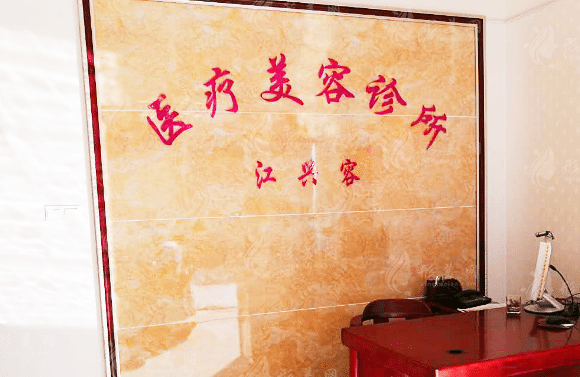 医疗美容诊所
江兴容